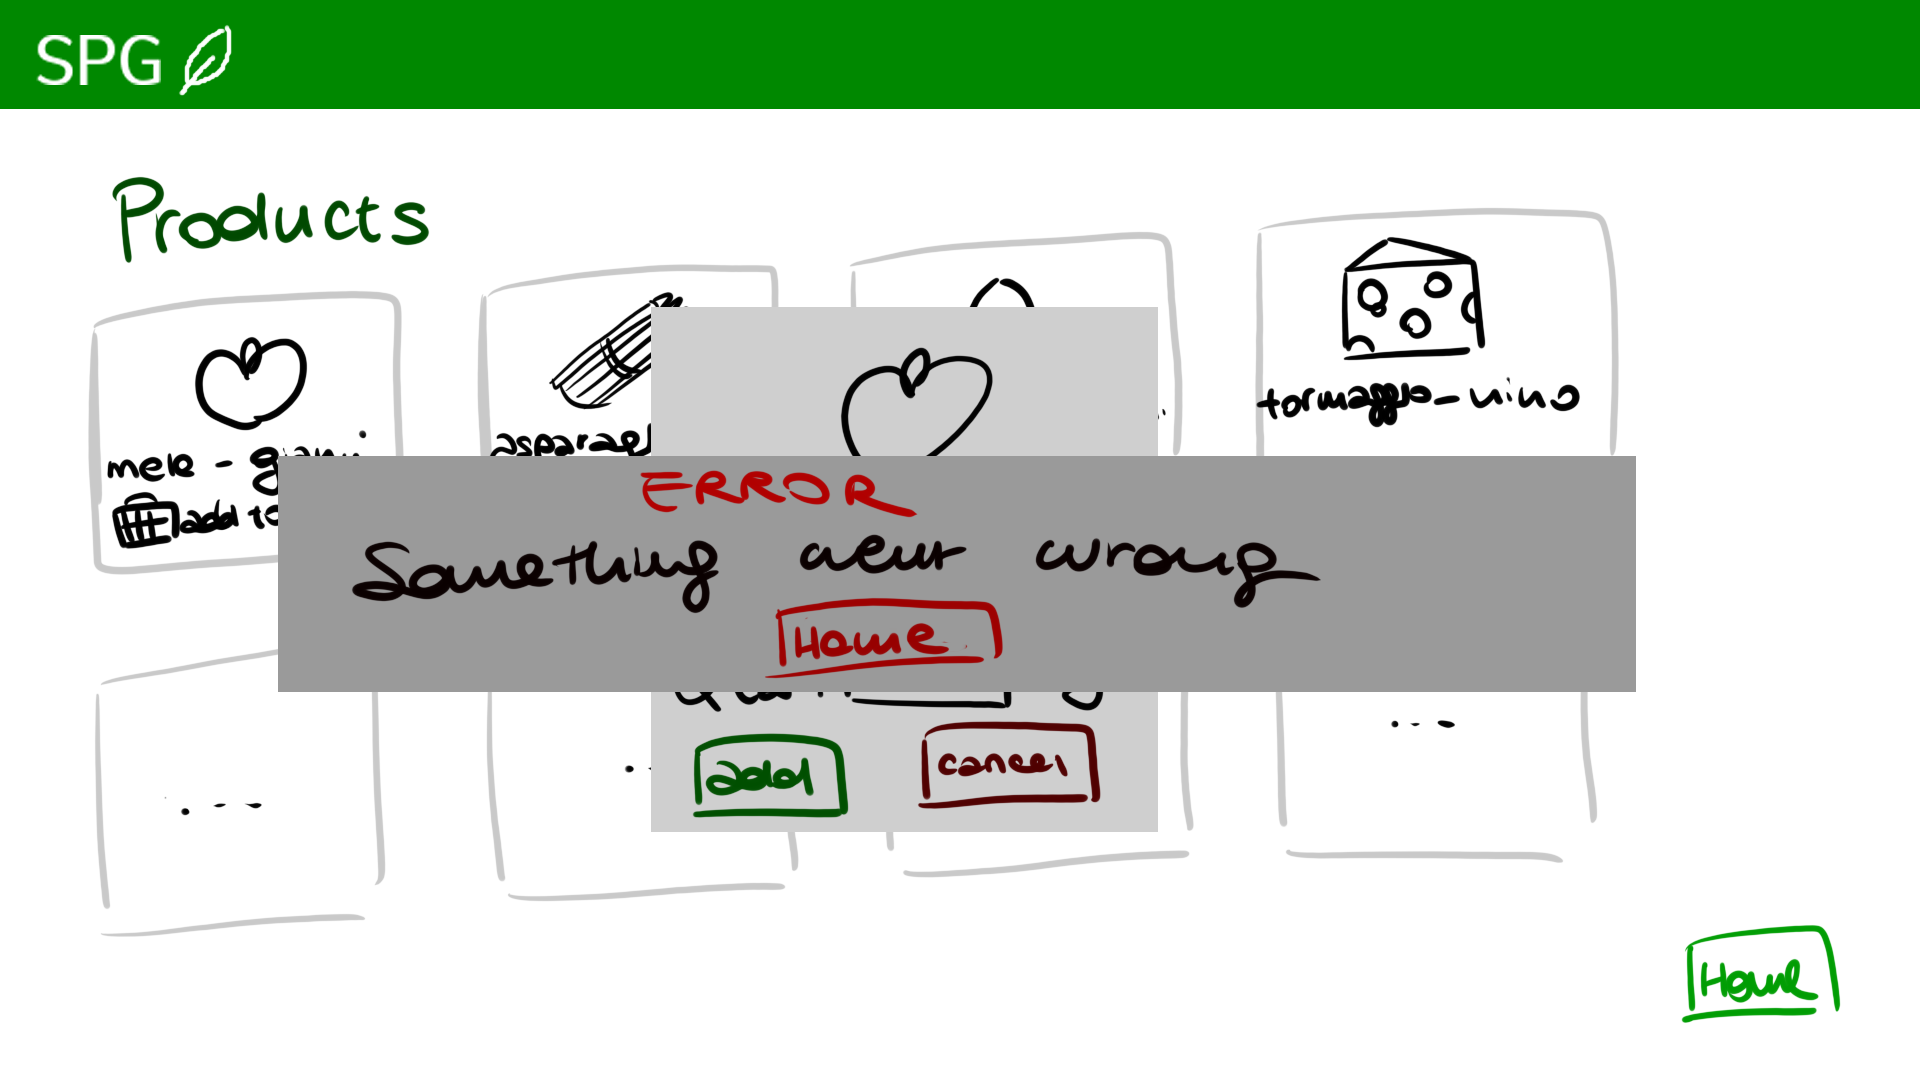 SPG
Products
mele - gianni
add to
asparag
formaggio - nino
ERROR
Something went wrong
Home
add
cancel
Home